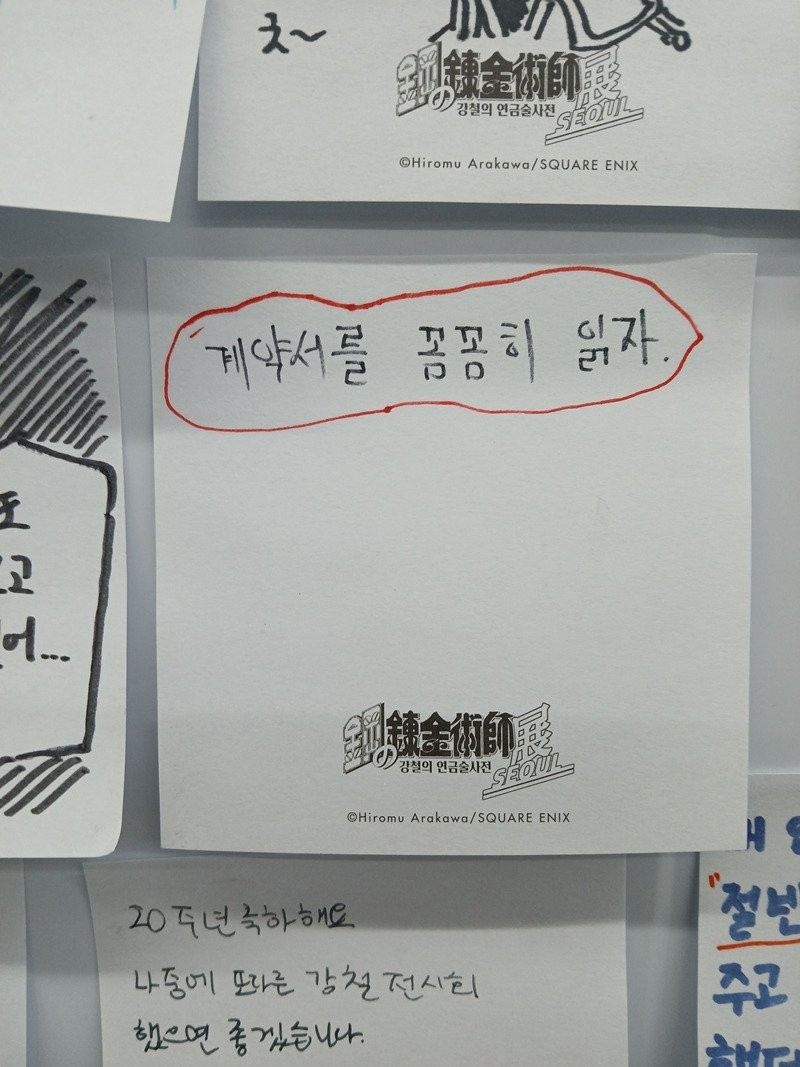 굿~
鋼の錬金術師展
강철의 연금술사전
SEOUL
©Hiromu Arakawa/SQUARE ENIX
계약서를 꼼꼼히 읽자.
도
고
어...
鋼の錬金術師展
강철의 연금술사전
SEOUL
©Hiromu Arakawa/SQUARE ENIX
20주년축하해요
나중에 또다른 강철 전시회
했으면 좋겠습니다.
"절반
주고